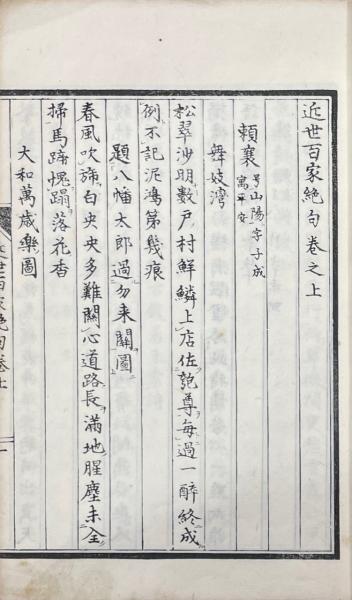 近世百家絶句卷之上
頼襄 号山陽字子成
寓平安
舞妓灣
松翠沙明數戸村鮮鱗上店佐匏尊毎過一醉終成
例不記泥鴻第幾痕
題八幡太郎過勿来關圖
春風吹旆白央央多難關心道路長滿地腥塵未全
掃馬蹄愧蹋落花香
大和萬歳樂圖